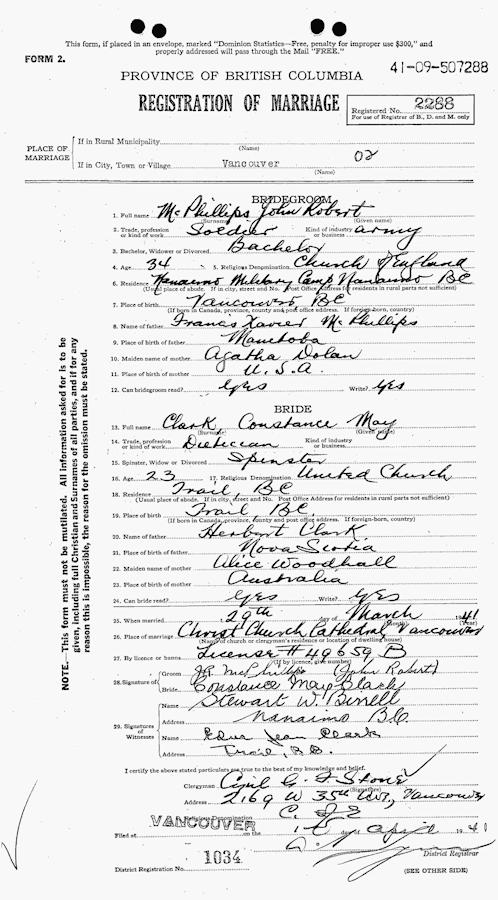 This form, if placed in an envelope, marked "Dominion Statistics—Free, penalty for improper use $300," and
properly addressed will pass through the Mail "FREE."
FORM 2.
41-09-507288
PROVINCE OF BRITISH COLUMBIA
REGISTRATION OF MARRIAGE
Registered No. 2288
For use of Registrar of B., D. and M. only
PLACE OF MARRIAGE
If in Rural Municipality
(Name)
If in City, Town or Village Vancouver 02
(Name)
BRIDEGROOM
1. Full name McPhillips John Robert
(Surname) (Given name)
2. Trade, profession or kind of work Soldier Kind of industry or business army
3. Bachelor, Widower or Divorced Bachelor
4. Age 34 5. Religious Denomination Church of England
6. Residence Nanaimo Military Camp Nanaimo BC
(Usual place of abode. If in city, street and No. Post Office Address for residents in rural parts not sufficient)
7. Place of birth Vancouver BC
(If born in Canada, province, county and post office address. If foreign-born, country)
8. Name of father Francis Xavier McPhillips
9. Place of birth of father Manitoba
10. Maiden name of mother Agatha Dolan
11. Place of birth of mother U.S.A.
12. Can bridegroom read? Yes Write? Yes
BRIDE
13. Full name Clark, Constance May
(Surname) (Given name)
14. Trade, profession or kind of work Dietician Kind of industry or business
15. Spinster, Widow or Divorced Spinster
16. Age 23 17. Religious Denomination United Church
18. Residence Trail, BC
(Usual place of abode. If in city, street and No. Post Office Address for residents in rural parts not sufficient)
19. Place of birth Trail BC.
(If born in Canada, province, county and post office address. If foreign-born, country)
20. Name of father Herbert Clark
21. Place of birth of father Nova Scotia
22. Maiden name of mother Alice Woodhall
23. Place of birth of mother Australia
24. Can bride read? Yes Write? Yes
25. When married 29th day of March 1941
(Month) (Year)
26. Place of marriage Christ Church Cathedral, Vancouver
(Name of church or clergyman's residence or location of dwelling house)
27. By licence or banns License # 49659 B
(If by licence, give number)
28. Signature of
Groom J.R. McPhillips (John Robert)
Bride Constance May Clark
29. Signatures of Witnesses
Stewart W.
Address Nanaimo B.C.
Edna Jean Clark
Address Trail, B.C.
I certify the above stated particulars are true to the best of my knowledge and belief.
Clergyman Cyril G. F. Stone
(Signature)
Address 2169 W 35th Ave., Vancouver
Religious Denomination C. of E
Filed at VANCOUVER on the 1 day April 1941
District Registrar
District Registration No. 1034
(SEE OTHER SIDE)
NOTE.—This form must not be mutilated. All information asked for is to be
given, including full Christian and Surnames of all parties, and if for any
reason this is impossible, the reason for the omission must be stated.